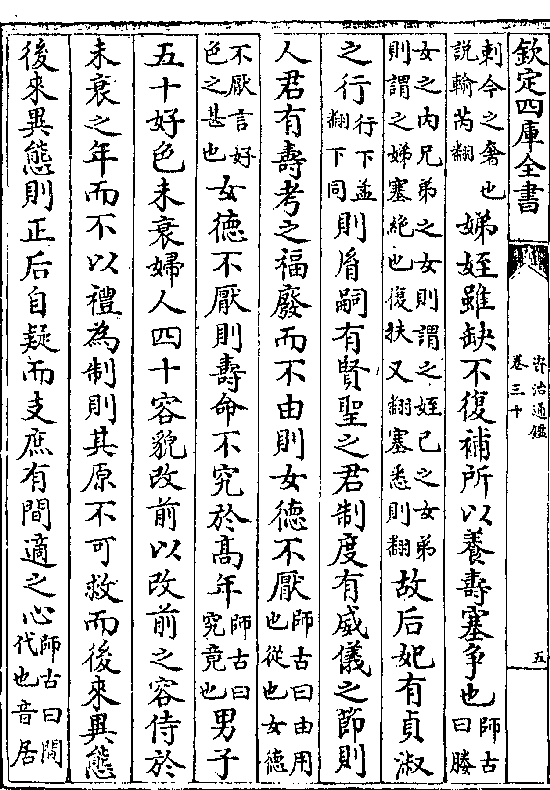 欽定四庫全書
資治通鑑
卷三十
五
刺今之奢也
說輸芮翻
娣姪雖缺不復補所以養壽塞爭也
師古
曰媵
女之内兄弟之女則謂之姪己之女弟
則謂之娣塞絶也復扶又翻塞悉則翻
故后妃有貞淑
之行
行下孟
翻下同
則胤嗣有賢聖之君制度有威儀之節則
人君有壽考之福廢而不由則女德不厭
師古曰由用
也從也女德
不厭言好
色之甚也
女德不厭則壽命不究於髙年
師古曰
究竟也
男子
五十好色未衰婦人四十容貌改前以改前之容侍於
未衰之年而不以禮為制則其原不可救而後來異態
後來異態則正后自疑而支庶有間適之心
師古曰間
代也音居